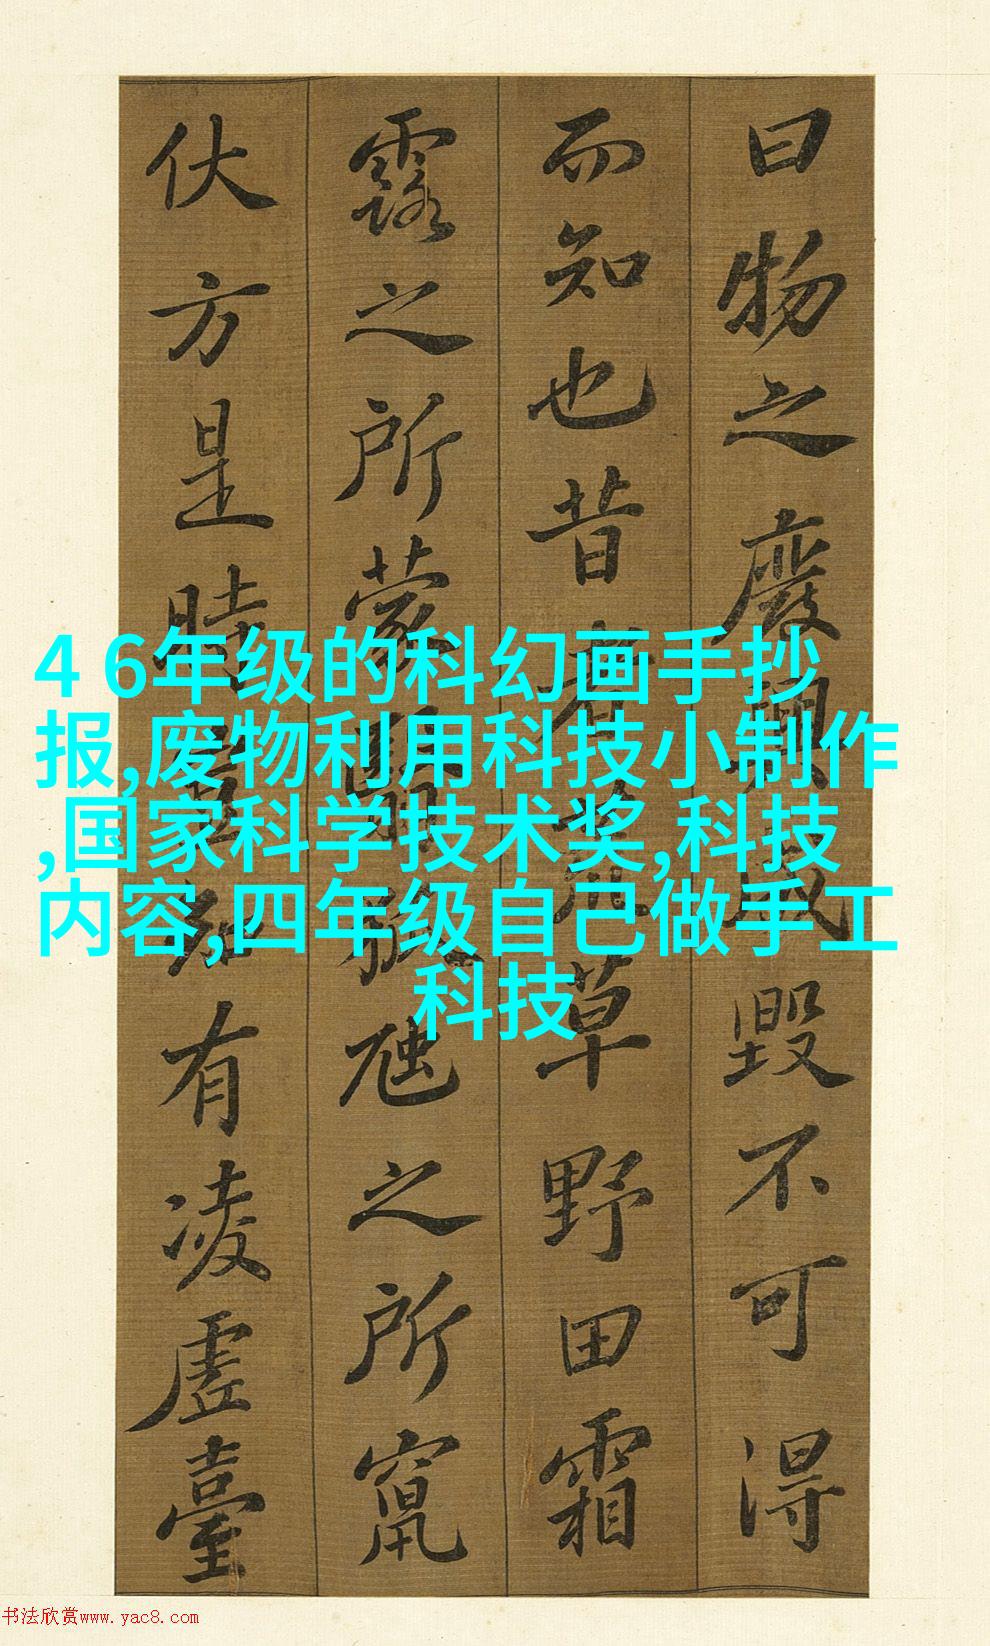 曰物之廢興成毀不可得
而知也昔者荒草野田霜
露之所蒙翳狐虺之所竄
伏方是時豈知有凌虛臺
4 6年级的科幻画手抄
报,废物利用科技小制作
,国家科学技术奖,科技
内容,四年级自己做手工
科技
书法欣赏www.yac8.com